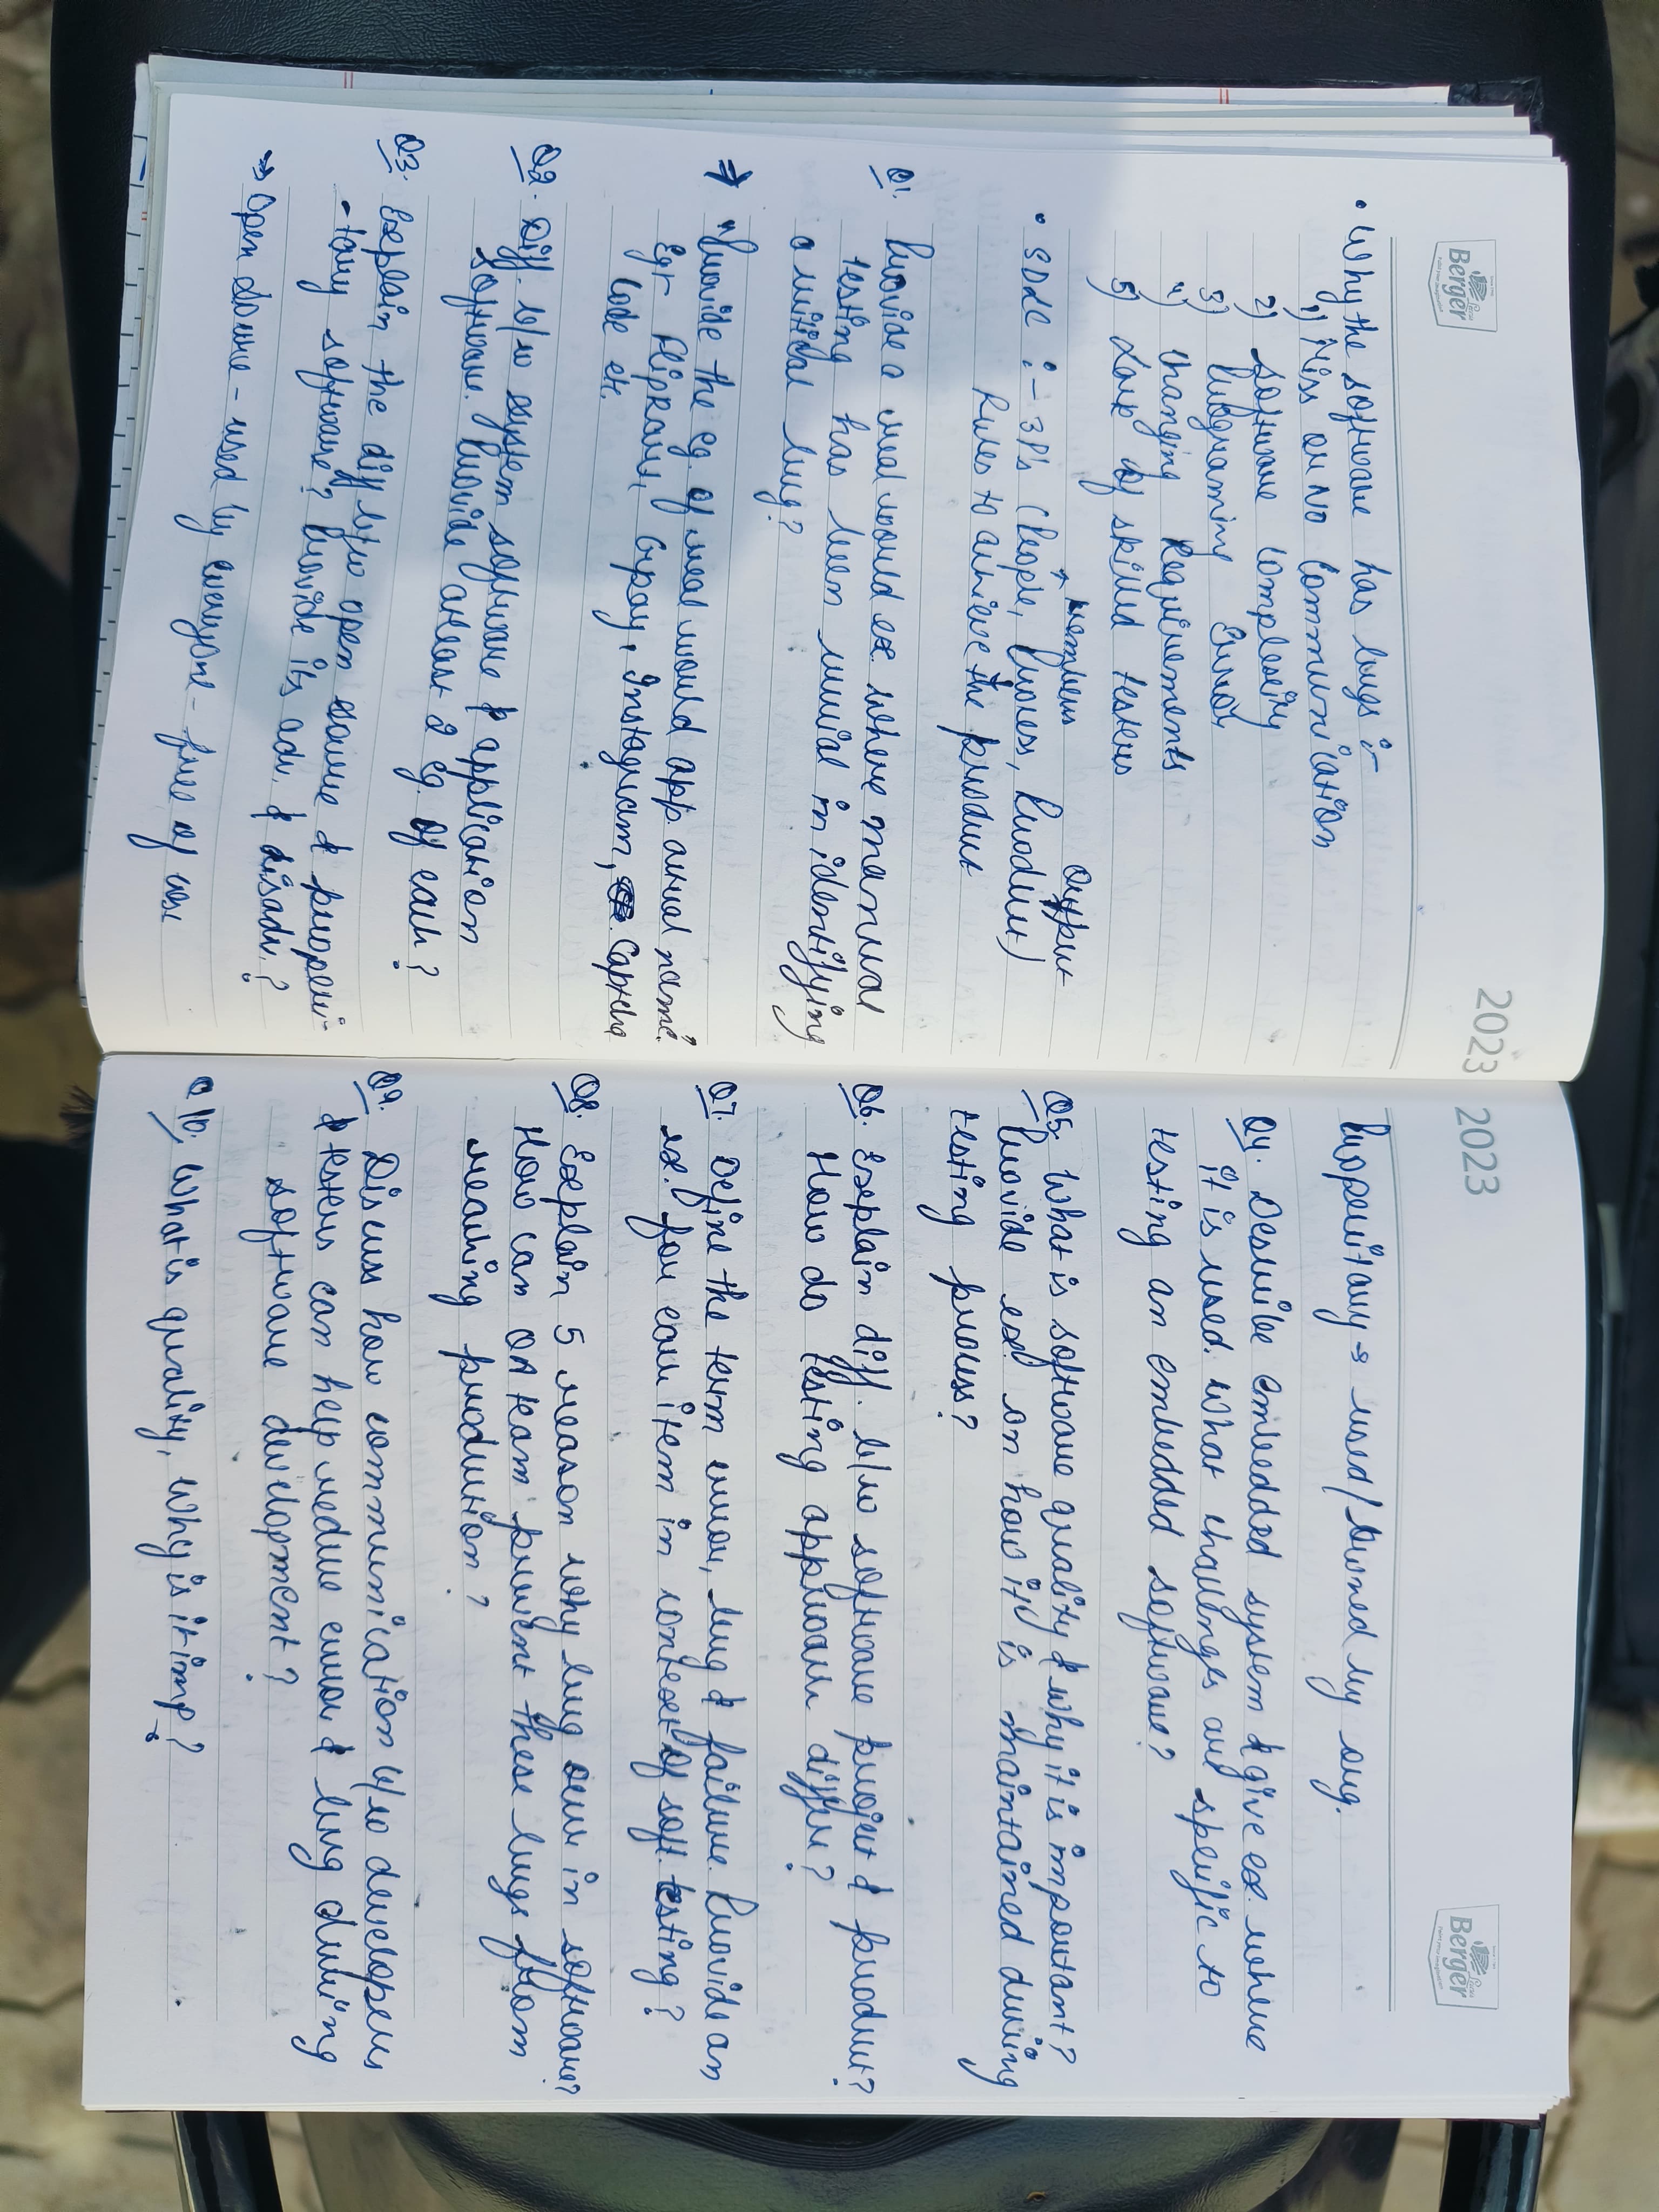 Berger
2023
• Why the software has bugs :-
1) Miss or No Communication
2) Software Complexity
3) Programing Error
4) Changing Requirements
5) Lack of skilled testers
members Output
• SDLC :- 3P's (People, Process, Product)
Rules to achieve the product
Q1. Provide a real world ex. where manual
testing has been crucial in identifying
a critical bug?
⇒ "Provide the eg. of real world app. actual name."
Eg:- Flipkart, Gpay, Instagram, Captcha
Code etc.
Q2. Diff. b/w system software & application
software. Provide atleast 2 eg. of each?
Q3. Explain the diff b/w open source & properi-
-tary software? Provide its adv. & disadv.?
→ Open Source - used by everyone - free of cost
2023
Berger
Properitary → used/Owned by org.
Q4. Describe embedded system & give ex. where
it is used. What challenges are specific to
testing an embedded software?
Q5. What is software quality & why it is important?
Provide ex. on how it is maintained during
testing process?
Q6. Explain diff. b/w software project & product?
How do testing approach differ?
Q7. Define the term error, bug & failure. Provide an
ex. for each item in context of soft. testing?
Q8. Explain 5 reason why bug occur in software?
How can QA team prevent these bugs from
reaching production?
Q9. Discuss how communication b/w developers
& testers can help reduce error & bug during
software development?
Q10. What is quality, Why is it imp?